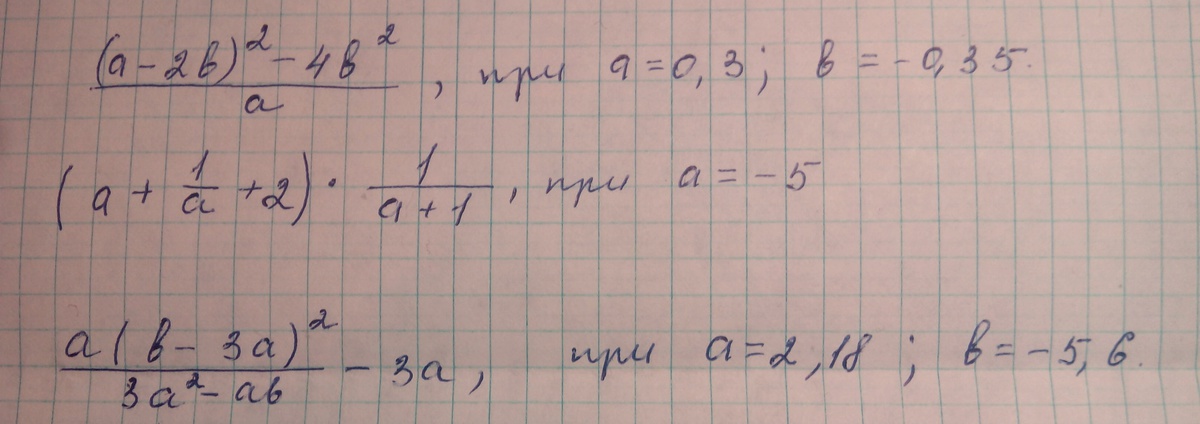 (a - 2b)² - 4b² / a, при a = 0,3; b = -0,35.
(a + 1/a + 2) · 1/(a + 1), при a = -5
a(b - 3a)² / (3a² - ab) - 3a, при a = 2,18; b = -5,6.